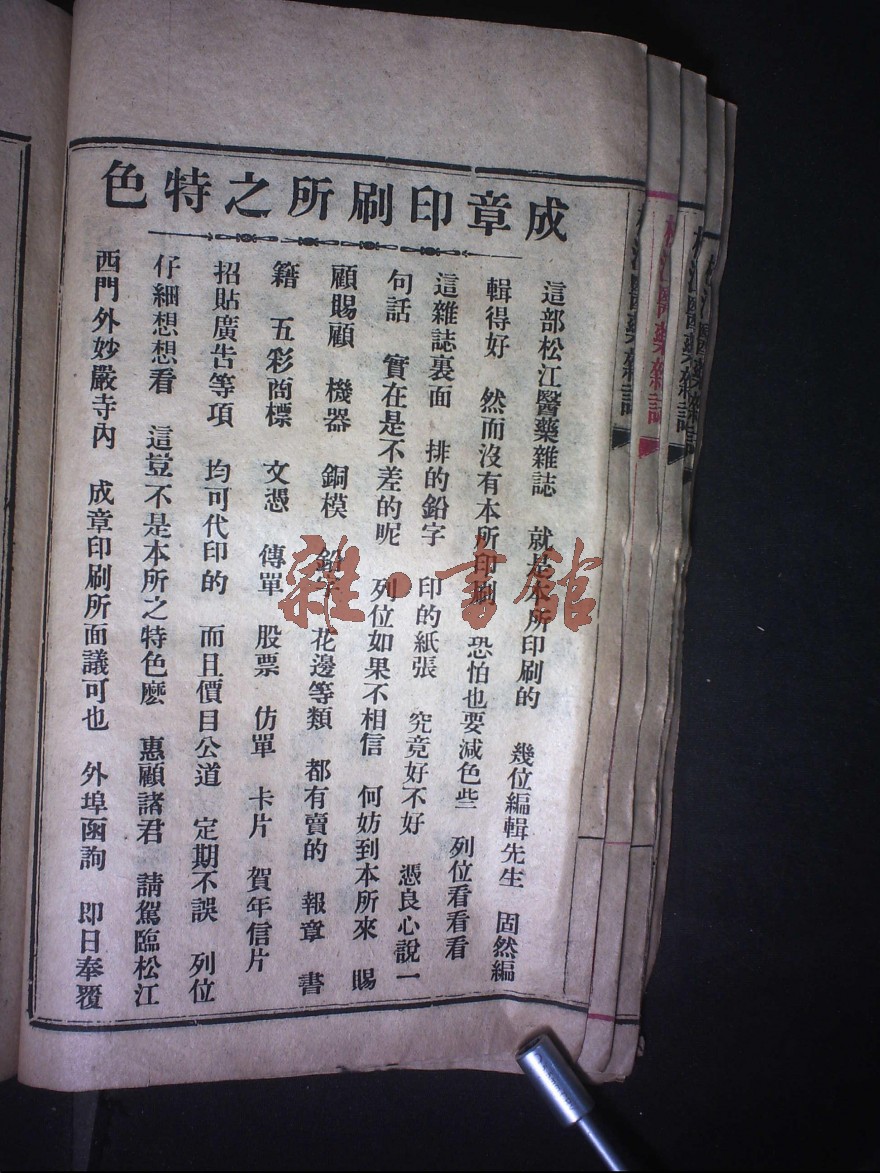 成章印刷所之特色
這部松江醫藥雜誌　就是本所印刷的　幾位編輯先生　固然編
輯得好　然而沒有本所印刷　恐怕也要減色些　列位看看看
這雜誌裏面　排的鉛字　印的紙張　究竟好不好　憑良心說一
句話　實在是不差的呢　列位如果不相信　何妨到本所來　賜
顧賜顧　機器　銅模　鉛字　花邊等類　都有賣的　報章　書
籍　五彩商標　文憑　傳單　股票　仿單　卡片　賀年信片
招貼廣告等項　均可代印的　而且價目公道　定期不誤　列位
仔細想想看　這豈不是本所之特色麽　惠顧諸君　請駕臨松江
西門外妙嚴寺內　成章印刷所面議可也　外埠函詢　即日奉覆
松江醫藥雜誌
松江醫藥雜誌
松江醫藥雜誌
松江醫藥雜誌
雜·書館